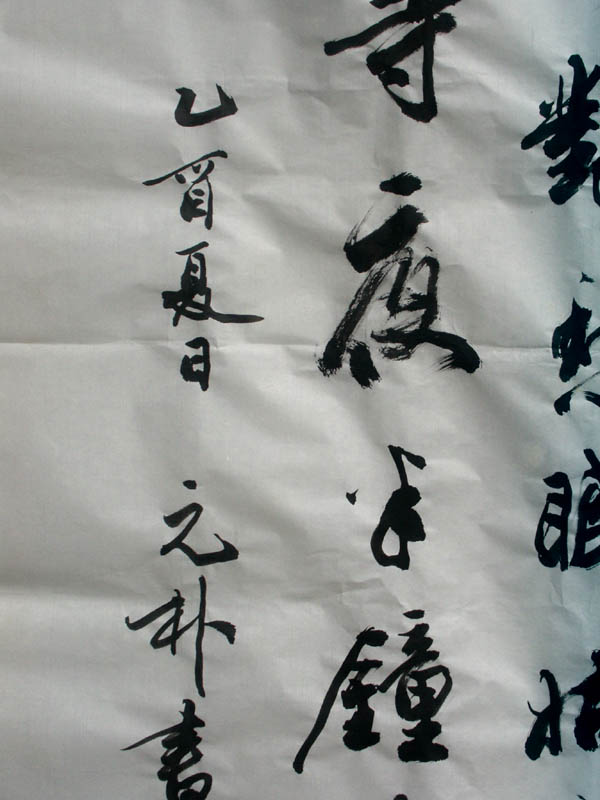 對愁眠姑
寺夜半鐘
乙酉夏日 元朴書